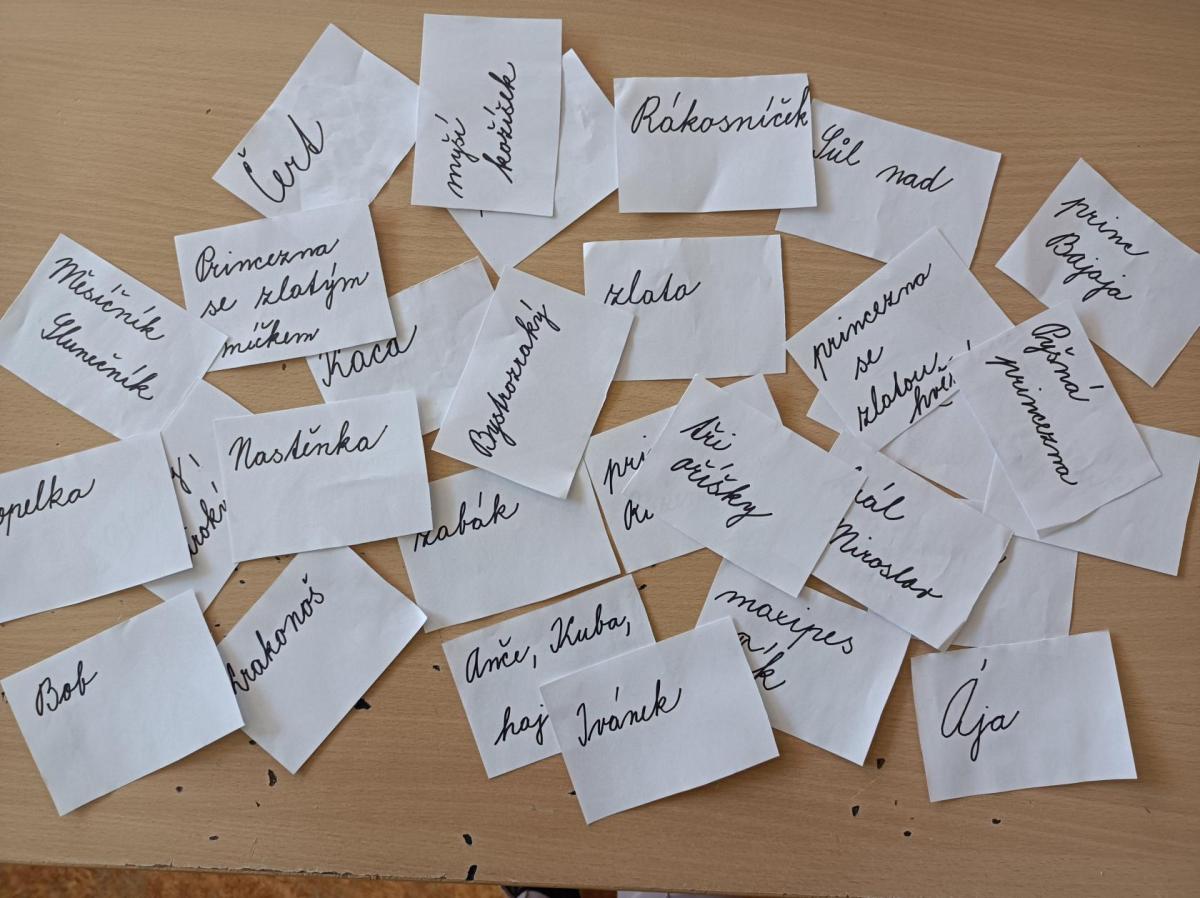 Čert
myší
kožíšek
Rákosníček
Sůl nad
princ
Bajaja
Měsíčník
Slunečník
Princezna
se zlatým
míčkem
Káča
Bystrozraký
zlato
princezna
se
zlatou
Pyšná
princezna
Nastěnka
zabák
pri
tři
oříšky
ál
Miroslav
opelka
Bob
Krakonoš
Anče, Kuba,
haj
Ivánek
maxipes
k
Ája